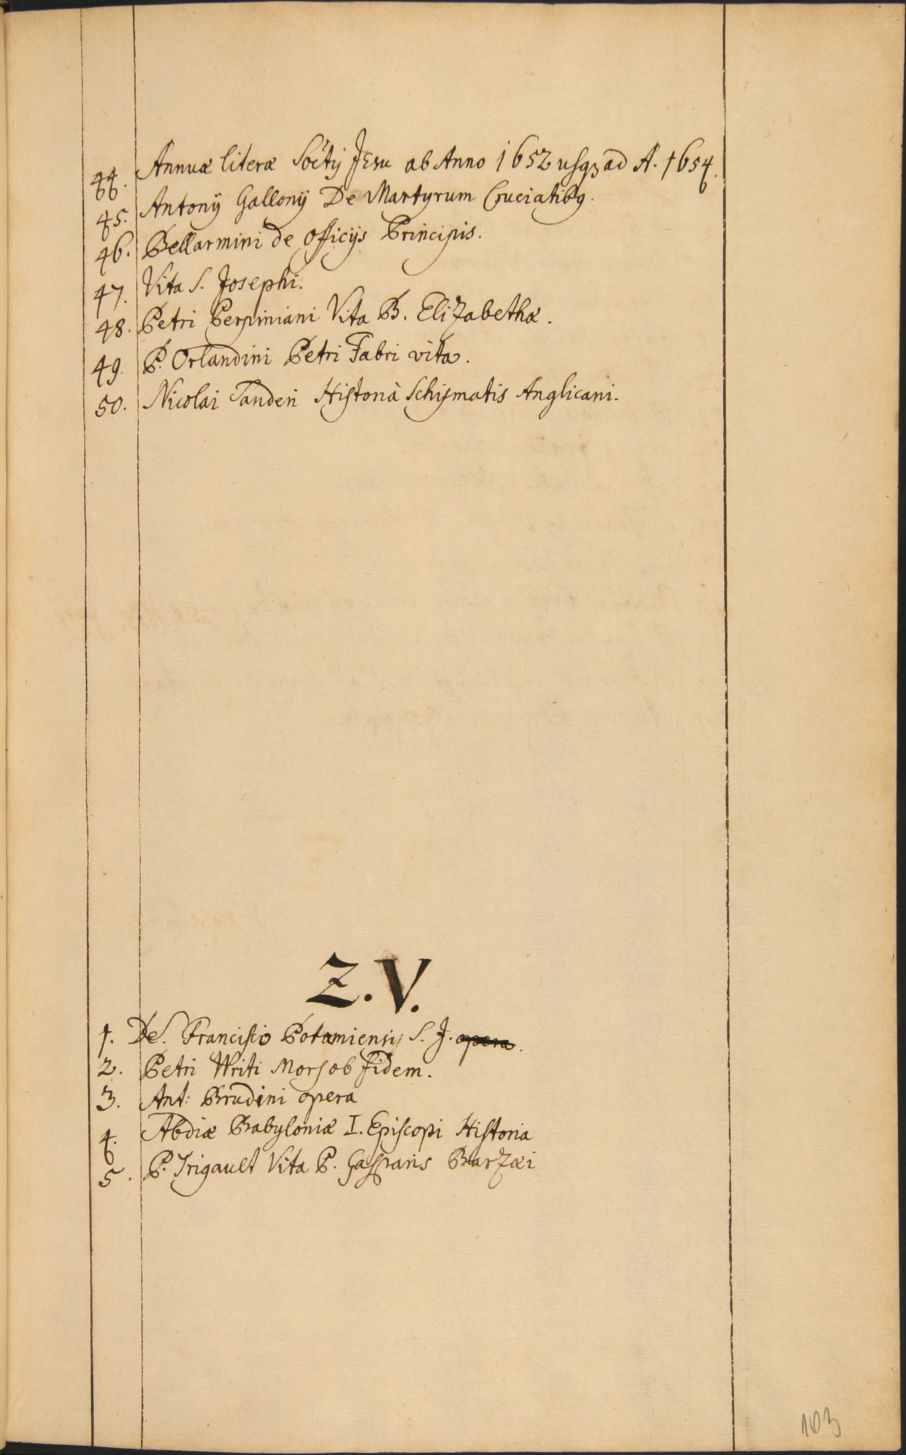 44. Annuæ literæ Soctij JEsu ab Anno 1652 usqз ad A. 1654.
45. Antonij Gallonij De Martyrum Cruciatibꝰ.
46. Bellarmini de Officijs Principis.
47. Vita S. Josephi.
48. Petri Perpiniani Vita B. Elizabethæ.
49. P. Orlandini Petri Fabri vita.
50. Nicolai Sanderi Historia Schismatis Anglicani.
Z.V.
1. De S. Francisco Potamiensi S. J. opera.
2. Petri Writi Mors ob fidem.
3. Ant: Brudini opera
4. Abdiæ Babyloniæ I. Episcopi Historia
5. P. Trigault Vita P. Gasparis Barzæi
103